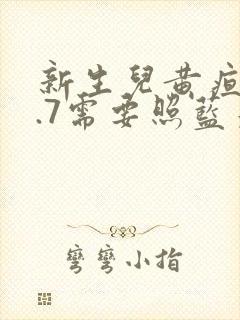 新生兒黃疸
.7需要照藍
彎彎小指